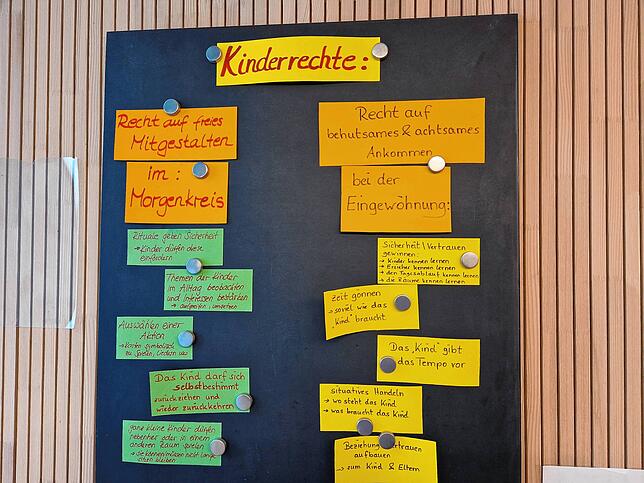 Kinderrechte:
Recht auf freies
Mitgestalten
im:
Morgenkreis
Rituale geben Sicherheit
→ Kinder dürfen diese
einfordern
Themen der Kinder
im Alltag beobachten
und Interessen bestärken
→ aufgreifen, umsetzen
Auswählen einer
Aktion
→ Karten symbolisch
zu Spielen, Liedern usw
Das Kind darf sich
selbstbestimmt
zurückziehen und
wieder zurückkehren
ganz kleine Kinder dürfen
nebenher oder in einem
anderen Raum spielen
→ sie können/müssen nicht lange
sitzen bleiben
Recht auf
behutsames & achtsames
Ankommen
bei der
Eingewöhnung:
Sicherheit \ Vertrauen
gewinnen:
→ Kinder kennen lernen
→ Erzieher kennen lernen
→ den Tagesablauf kennen lernen
→ die Räume kennen lernen
Zeit gönnen
→ soviel wie das
"Kind" braucht
Das "Kind" gibt
das Tempo vor
situatives Handeln
→ wo steht das Kind
→ was braucht das Kind
Beziehung Vertrauen
aufbauen
→ zum Kind & Eltern